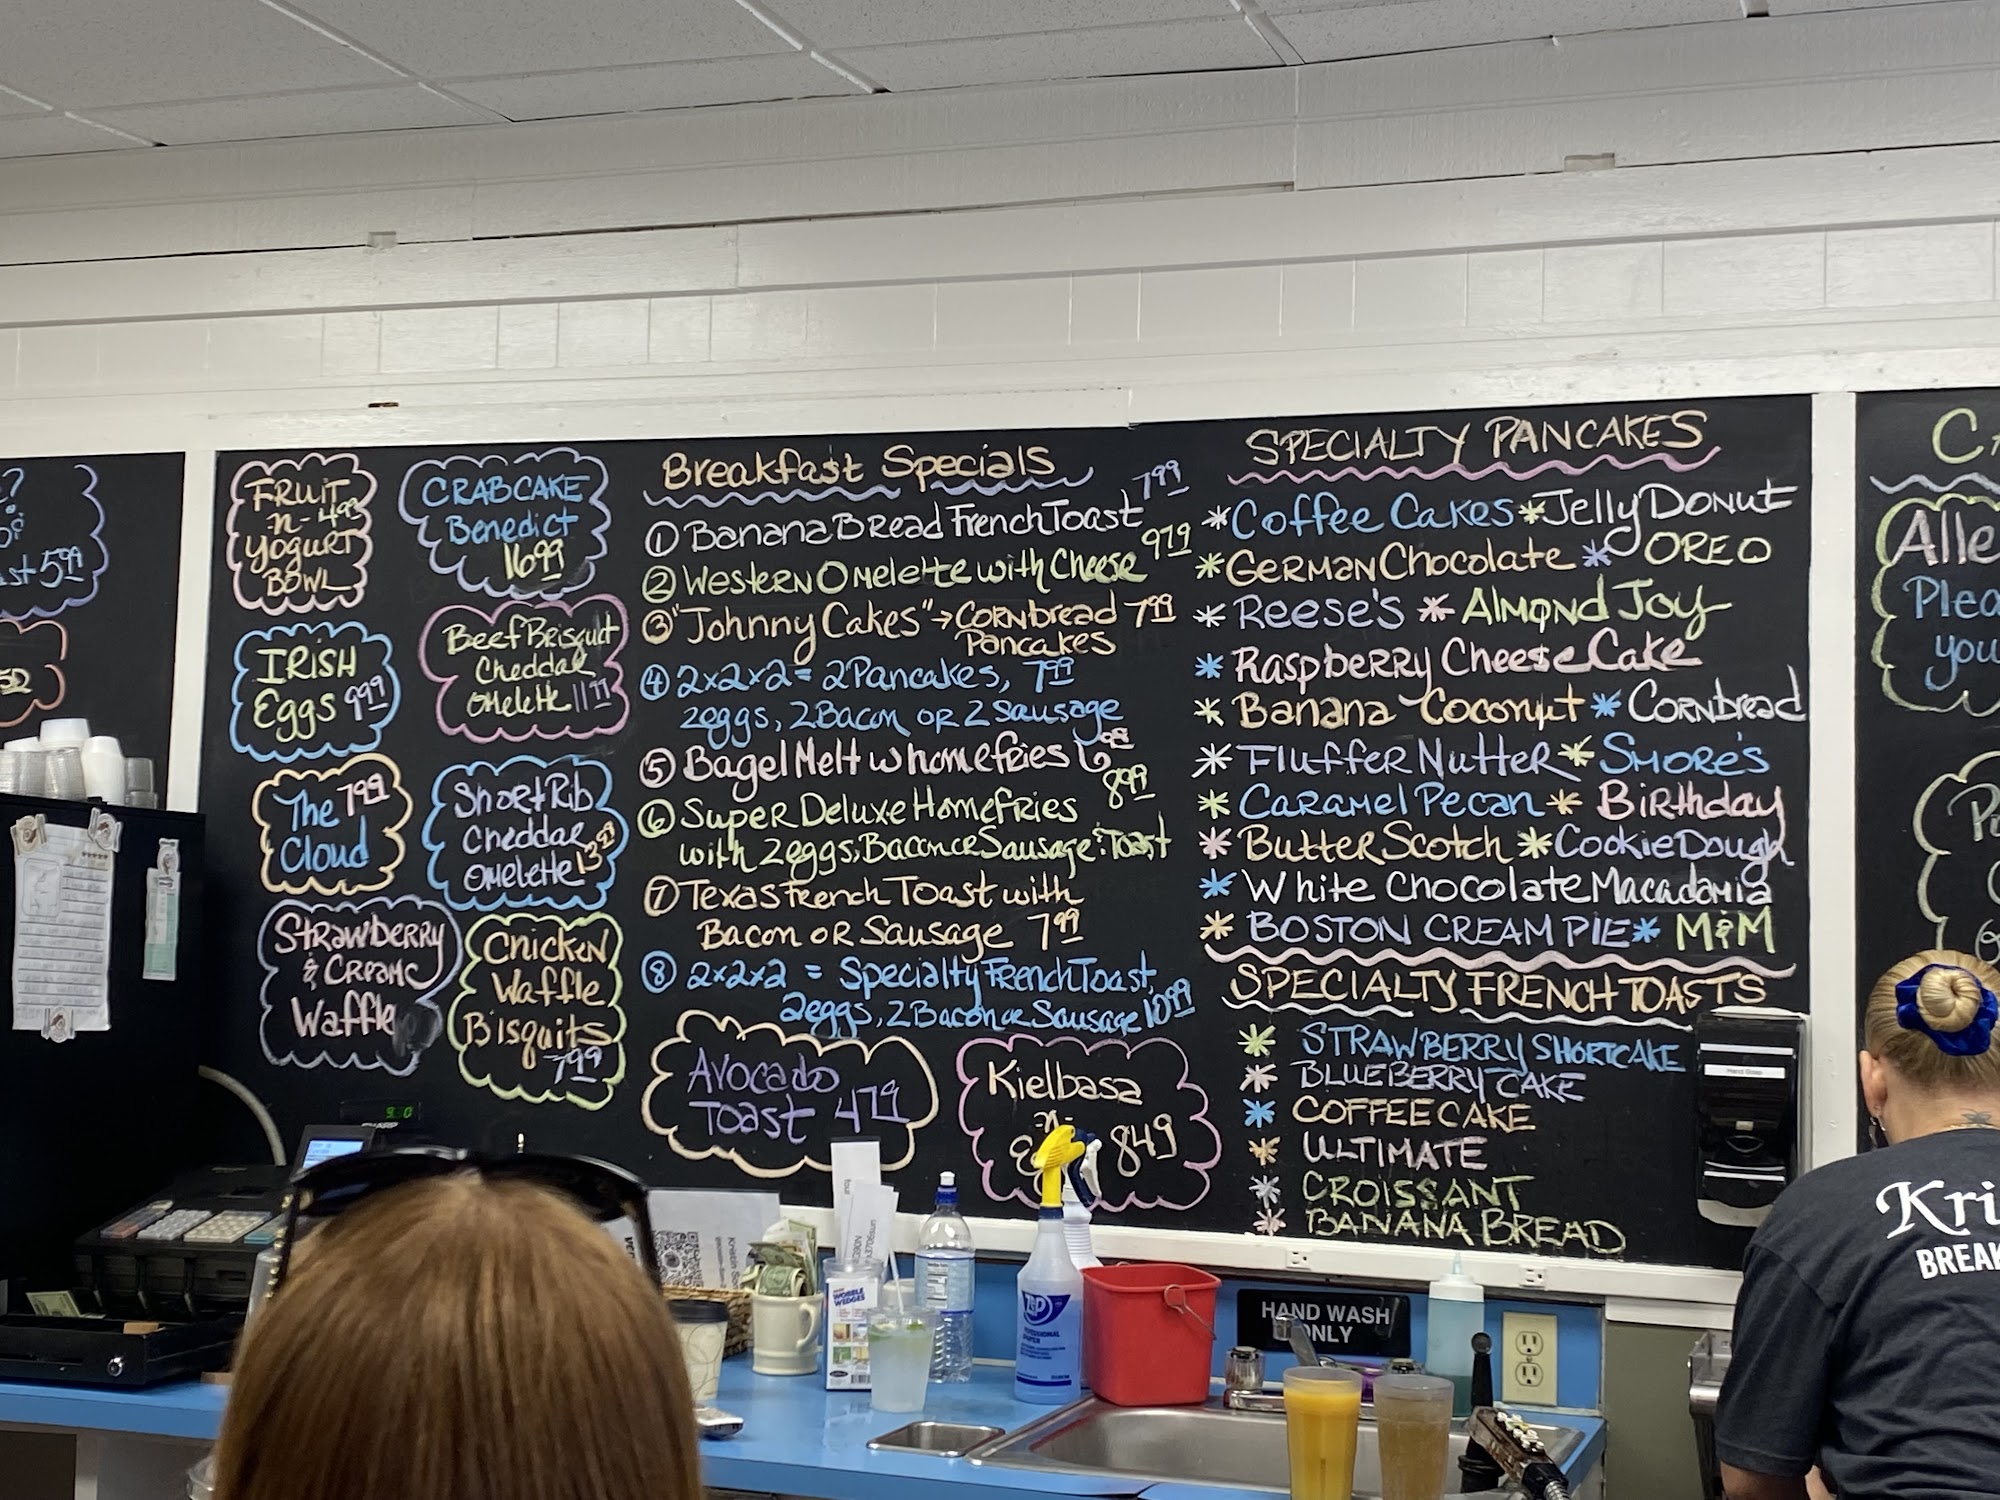 st 5.99
FRUIT
-n- 4.99
YOGURT
BOWL
CRABCAKE
Benedict
16.99
IRISH
Eggs 9.99
BeefBrisquit
Cheddar
Omelette 11.99
The 7.99
Cloud
ShortRib
Cheddar
Omelette
Strawberry
& Creame
Waffle
Chicken
Waffle
Bisquits
7.99
Breakfast Specials
① Banana Bread French Toast 7.99
② Western Omelette with Cheese 9.79
③ "Johnny Cakes" → Cornbread 7.99
Pancakes
④ 2x2x2 = 2 Pancakes, 7.99
2eggs, 2 Bacon or 2 Sausage
⑤ Bagel Melt w homefries 6.98
⑥ Super Deluxe Homefries 8.99
with 2eggs, Bacon or Sausage & Toast
⑦ Texas French Toast with
Bacon or Sausage 7.99
⑧ 2x2x2 = Specialty French Toast,
2eggs, 2 Bacon or Sausage 10.99
Avocado
Toast 4.79
Kielbasa
-n-
8.49
SPECIALTY PANCAKES
* Coffee Cakes * Jelly Donut
* German Chocolate * OREO
* Reese's * Almond Joy
* Raspberry Cheese Cake
* Banana Coconut * Cornbread
* Fluffer Nutter * Smore's
* Caramel Pecan * Birthday
* Butter Scotch * Cookie Dough
* White Chocolate Macadamia
* BOSTON CREAM PIE * M&M
SPECIALTY FRENCH TOASTS
* STRAWBERRY SHORTCAKE
* BLUEBERRY CAKE
* COFFEE CAKE
* ULTIMATE
* CROISSANT
* BANANA BREAD
Alle
Plea
you
Kri
BREAK
HAND WASH
ONLY
WOBBLE
WEDGES
Hand Soap